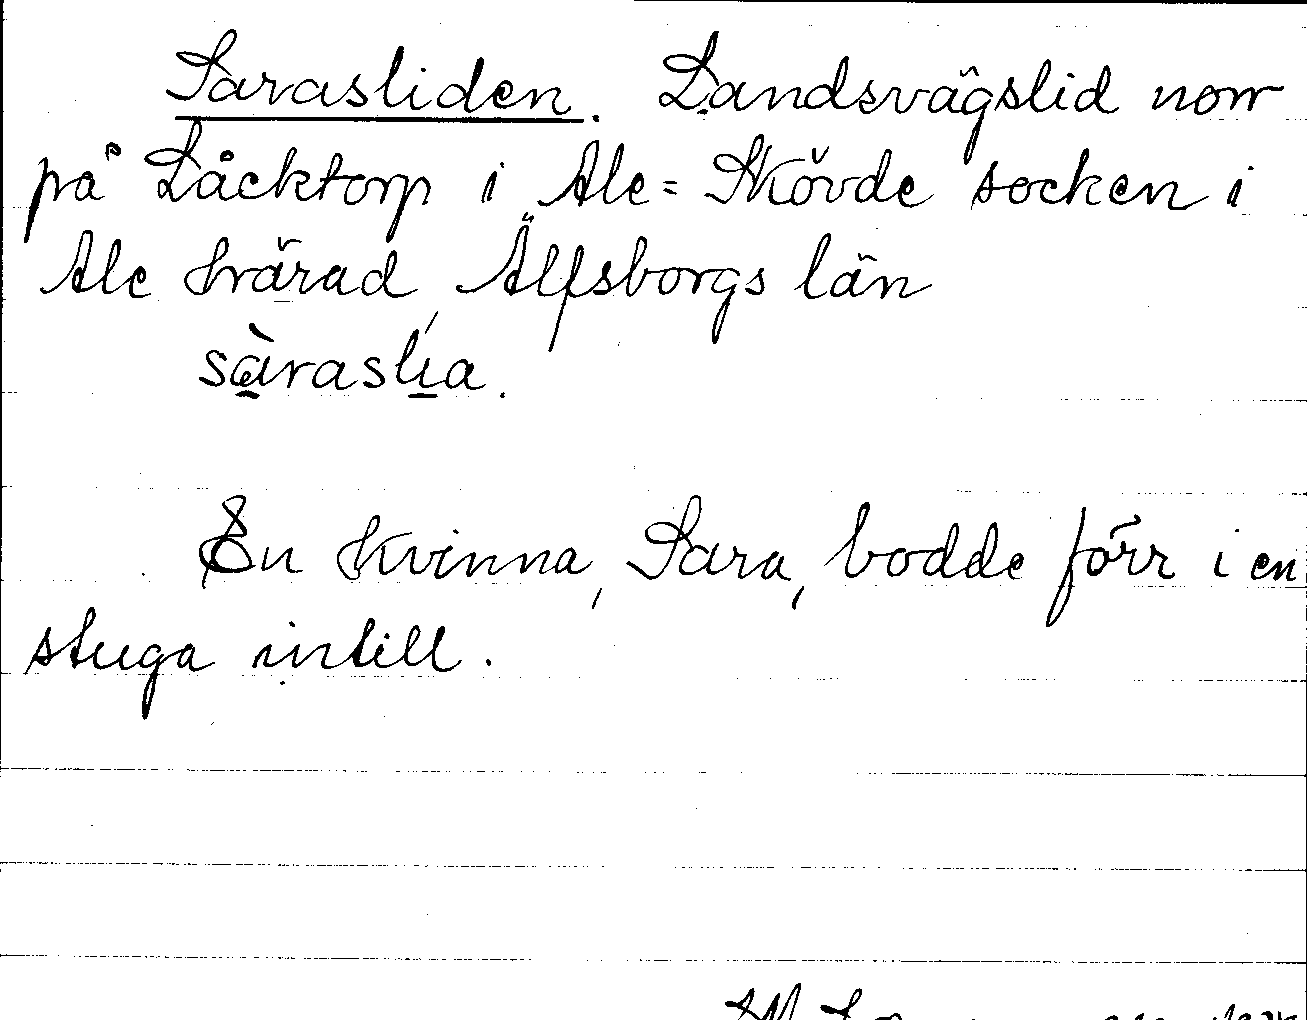 Sarasliden. Landsvägslid norr
på Låcktorp i Ale=Skövde socken i
Ale härad, Älfsborgs län
sàraslia.
En kvinna, Sara, bodde förr i en
stuga intill.